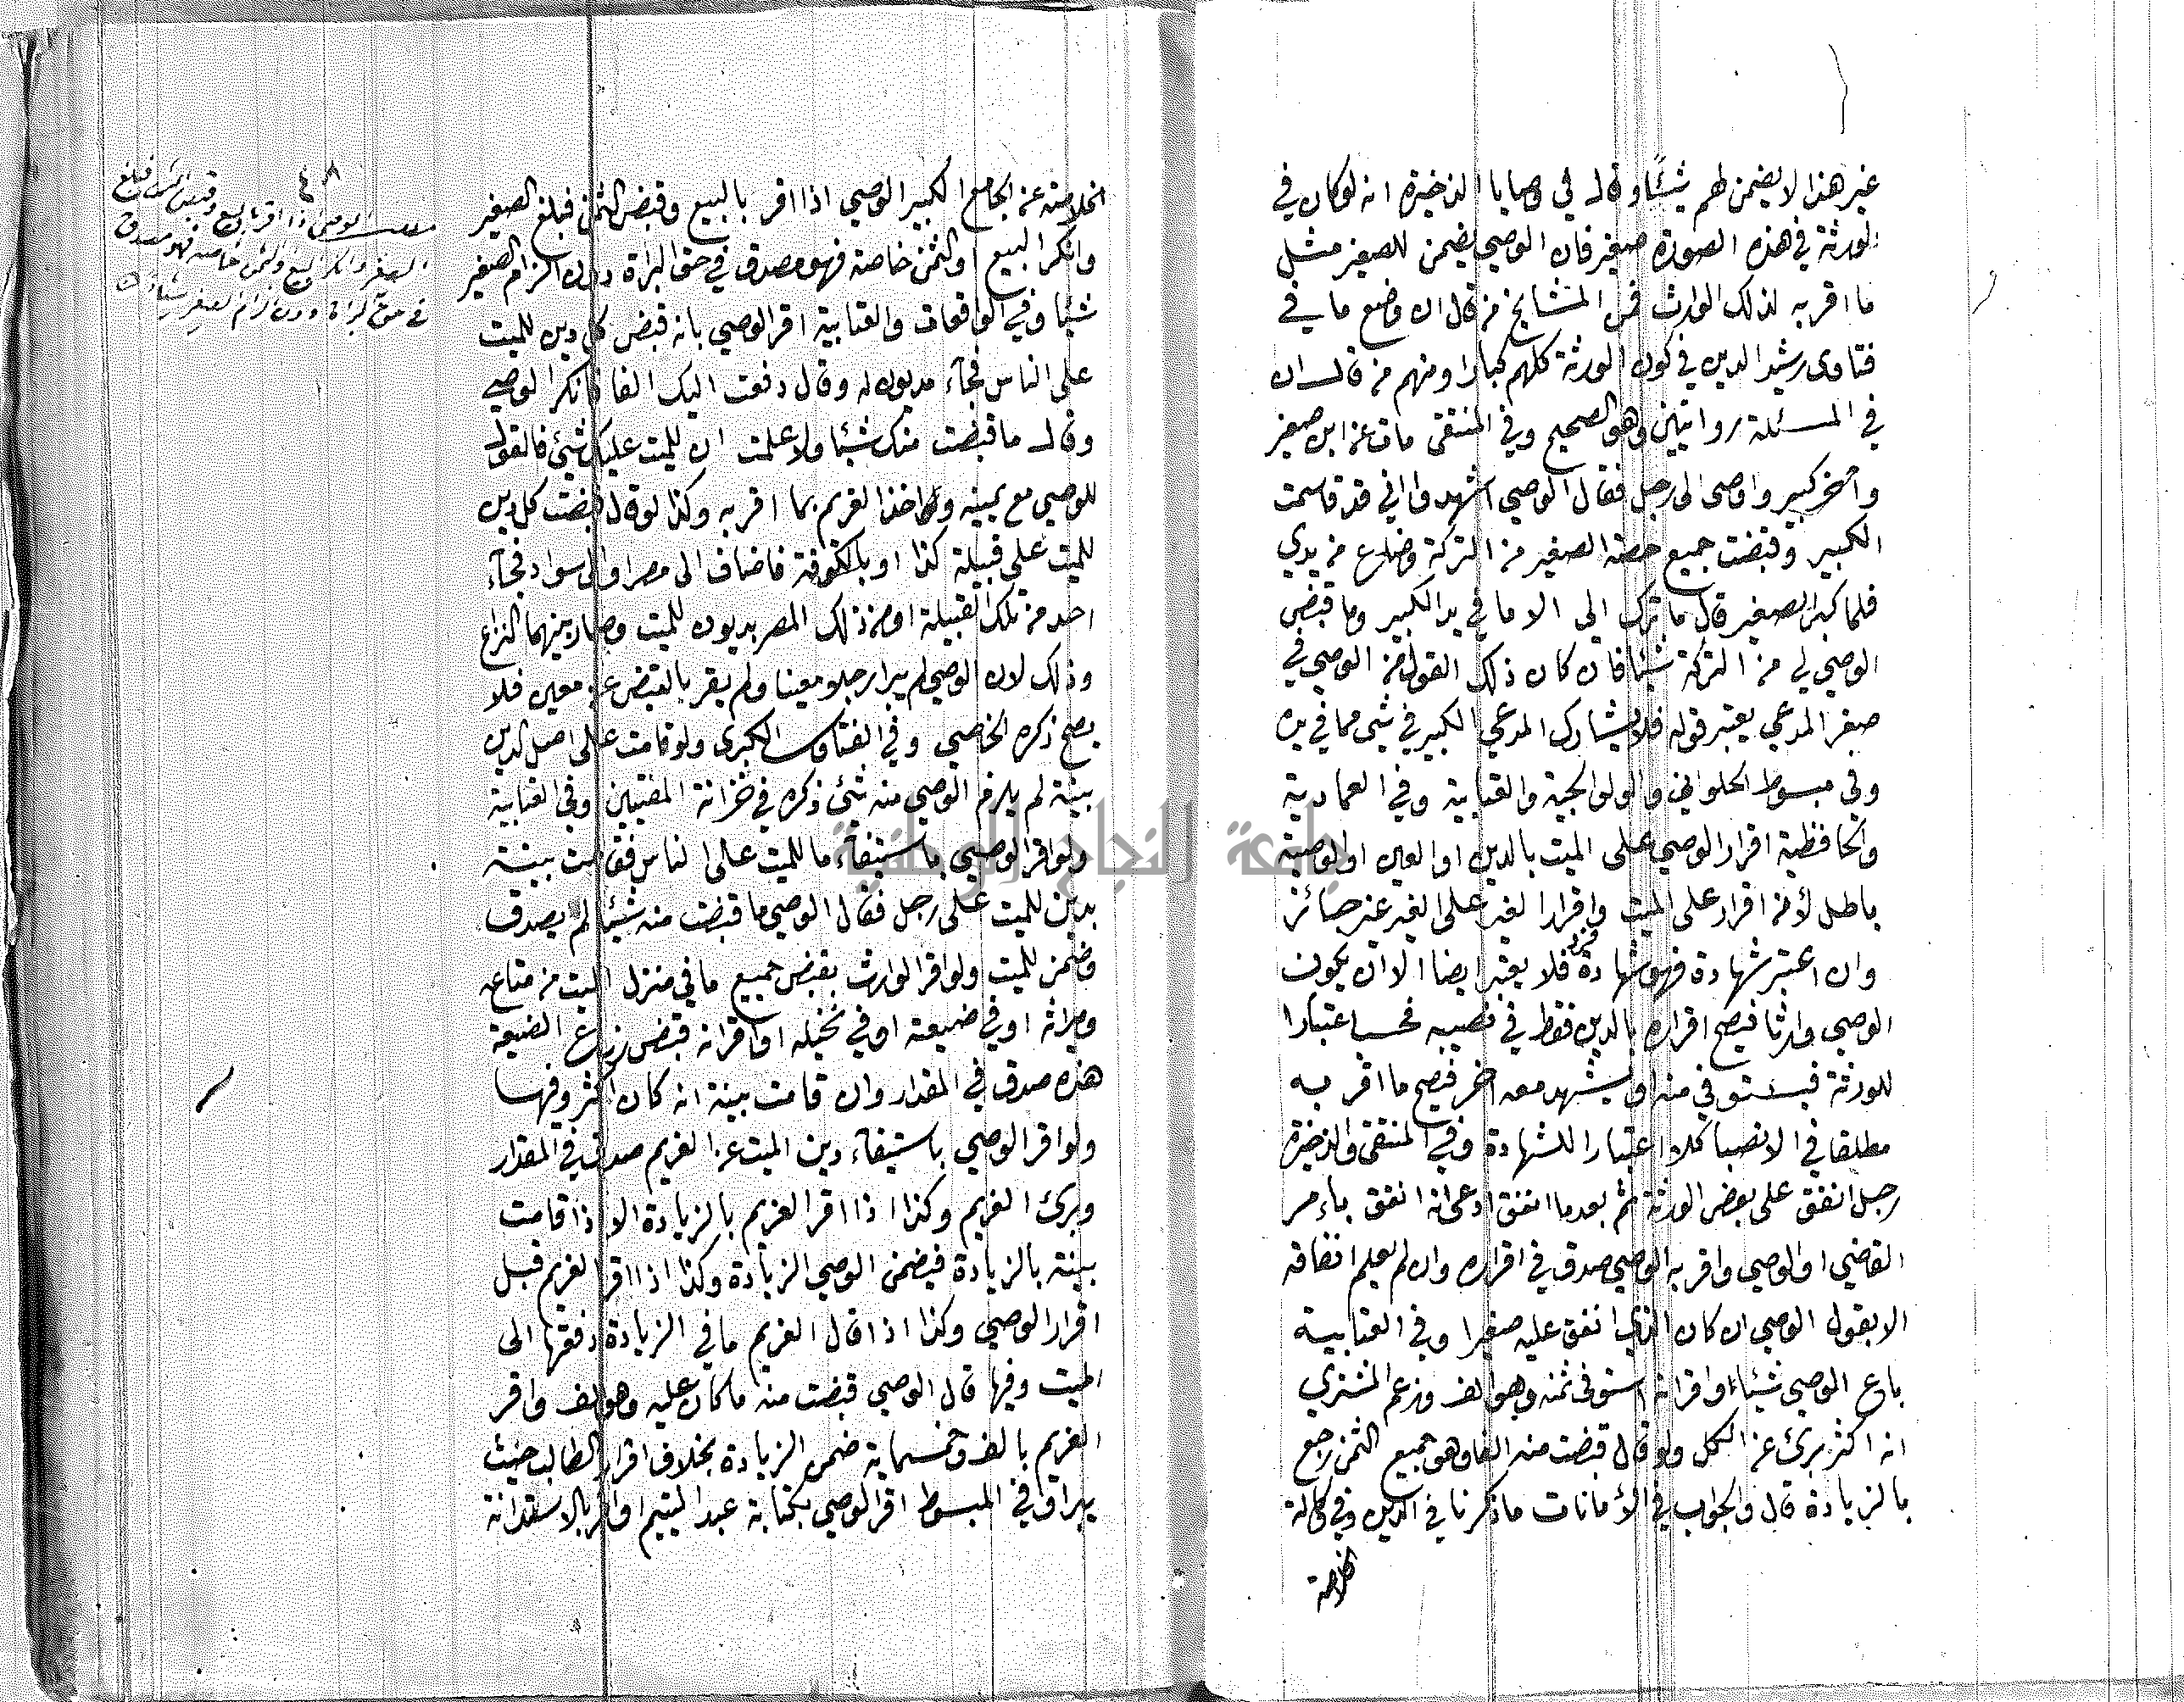 غير هذا لا يضمن لهم شيئًا وقال في وصايا الذخيرة انه لو كان في
الورثة في هذه الصورة صغير فان الوصي يضمن للصغير مثل
ما اقر به لذلك الوارث فمن المشايخ من قال ان وضع ما في
فتاوى رشيد الدين في كون الورثة كلهم كبارا ومنهم من قال ان
في المسئلة روايتين وهو الصحيح وفي المنتقى مات عن ابن صغير
وآخر كبير واوصى الى رجل فقال الوصي اشهدوا اني قد قاسمت
الكبير وقبضت جميع حصة الصغير من التركة وضاع من يدي
فلما كبر الصغير قال ما ترك ابي الا ما في يد الكبير وما قبض
الوصي لي من التركة شيئا فان كان ذلك القول من الوصي في
صغر المدعي يعتبر قوله فلا يشارك المدعي الكبير في شي مما في يده
وفي مبسوط الحلواني والولوالجية والعتابية وفي العمادية
والحافظية اقرار الوصي على الميت بالدين او العين او الوصية
باطل لأنه اقرار على الميت واقرار الغير على الغير غير جائز
وان اعتبر شهادة فهو شهادة فرد فلا يعتبر ايضا الا ان يكون
الوصي وارثا فيصح اقراره بالدين فقط في نصيبه فحسب اعتبارا
للورثة فيستوفي منه او يشهد معه اخر فيصح ما اقر به
مطلقا في الانصبا كلا اعتبارا للشهادة وفي المنتقى والذخيرة
رجل انفق على بعض الورثة ثم بعد ما انفق ادعى انه انفق بامر
القاضي او الوصي واقر به الوصي صدق في اقراره وان لم يعلم انفاقه
الا بقول الوصي ان كان الذي انفق عليه صغيرا وفي العتابية
باع الوصي شيئا واقر انه استوفى ثمنه وهو الف وزعم المشتري
انه اكثر برئ عن الكل ولو قال قبضت منه الفا وهو جميع الثمن رجع
بالزيادة قال والجواب في الأمانات ما ذكرنا في الدين وفي وكالة
الخلاصة
الخلاصة عن الجامع الكبير الوصي اذا اقر بالبيع وقبض الثمن فبلغ الصغير
وانكر البيع والثمن خاصة فهو مصدق في حق البراة دون الزام الصغير
شيئا وفي الواقعات والعتابية اقر الوصي بانه قبض كل دين للميت
على الناس فجآء مديون له وقال دفعت اليك الفا فانكر الوصي
وقال ما قبضت منك شيئا ولا علمت ان للميت عليك شئ فالقول
للوصي مع يمينه واخذ الغريم بما اقر به وكذا لو قال قبضت كل دين
للميت على قبيلة كذا او بالكوفة فاضاف الى مصر او الى سواد فجآء
احد من تلك القبيلة او من ذلك المصر بديون للميت وصار بينهما النزاع
وذلك لان الوصي لم يبرا رجلا معينا ولم يقر بالقبض عن معين فلا
يصح ذكره الخاصي وفي الفتاوى الكبرى ولو قامت على اصل الدين
بينة لم يلزم الوصي منه شئ ذكره في خزانة المفتيين وفي العتابية
ولو اقر الوصي باستيفآء ما للميت على الناس فقامت بينة
بدين للميت على رجل فقال الوصي ما قبضت منه شيئا لم يصدق
وضمن للميت ولو اقر الوارث بقبض جميع ما في منزل الميت من متاعه
وميراثه او في ضيعته او في نخيله او اقر انه قبض زرع الضيعة
هذه صدق في المقدار وان قامت بينة انه كان اكثر وفيها
ولو اقر الوصي باستيفآء دين الميت عن الغريم صدق في المقدار
وبرئ الغريم وكذا اذا اقر الغريم بالزيادة الا اذا قامت
بينة بالزيادة فيضمن الوصي الزيادة وكذا اذا اقر الغريم قبل
اقرار الوصي وكذا اذا قال الغريم ما في الزيادة دفعتها الى
الميت وفيها قال الوصي قبضت منه ما كان عليه وهو الف واقر
الغريم بالف وخمسماية ضمن الزيادة بخلاف اقرار الطالب حيث
يبرا وفي المبسوط اقر الوصي بكتابة عبد اليتيم او اقر بالاستدانة
٤٠٨
مطلب الوصي اذا اقر بالبيع وقبض الثمن فبلغ
الصغير وانكر البيع والثمن خاصة فهو مصدق
في حق البراة دون الزام الصغير شيئا
جامعة النجاح الوطنية